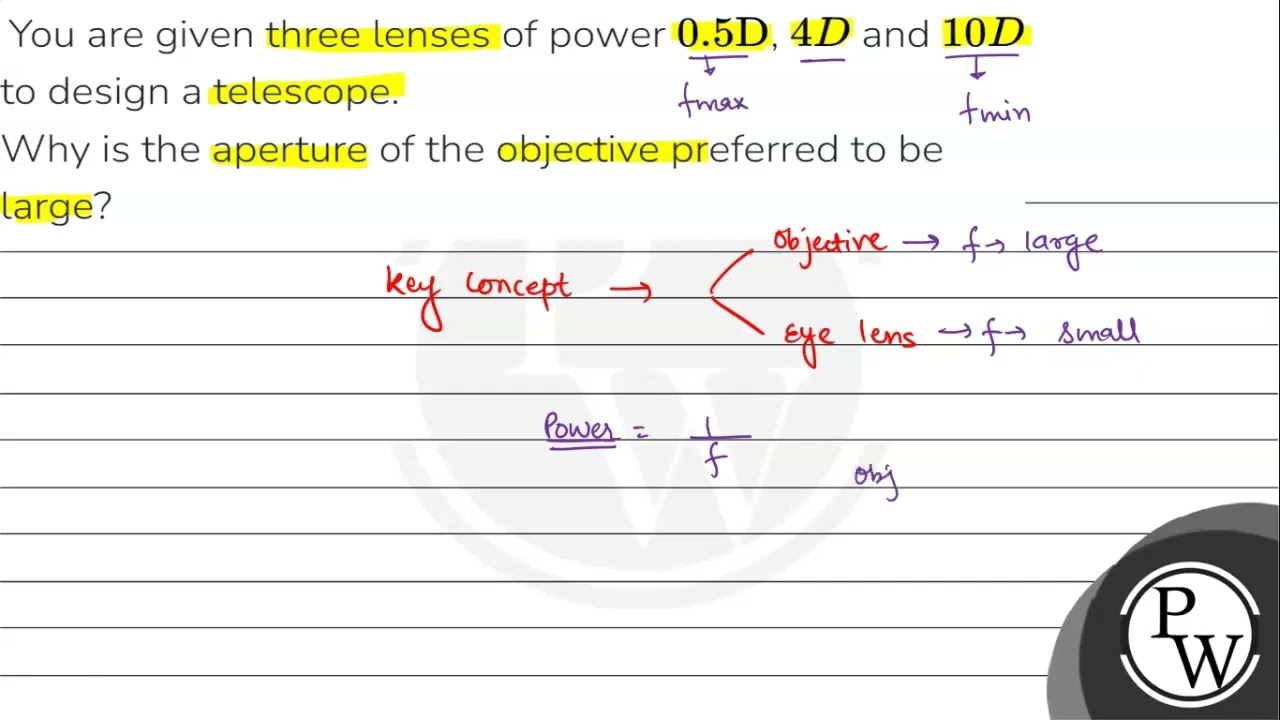 You are given three lenses of power 0.5D, 4D and 10D
to design a telescope.
fmax
fmin
Why is the aperture of the objective preferred to be
large?
Key concept →
Objective → f → large
Eye lens → f → small
Power = 1/f
obj
P
W